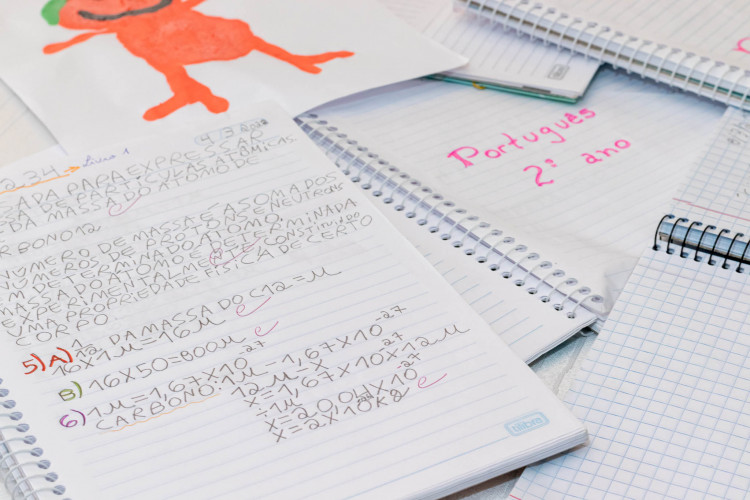 34 Livro 1
SADA PARA EXPRESSAR
SA DE PARTÍCULAS ATÔMICAS.
DA MASSA DO ÁTOMO DE
CARBONO 12
NÚMERO DE MASSA É A SOMA DOS
NÚMEROS DE PRÓTONS E NEUTRONS
DO ÁTOMO.
MASSA DO ÁTOMO É DETERMINADA
EXPERIMENTALMENTE E CONSTITUI
UMA PROPRIEDADE FÍSICA DE CERTO
CORPO.
5) A) 1/12 DA MASSA DO C12 = M
16 X 1M = 16M
B) 16 X 50 = 800M
6) 1M = 1,67 X 10⁻²⁷
CARBONO: 1M – 1,67 X 10⁻²⁷
12M – X
X = 1,67 X 10⁻²⁷ X 12M
÷ 1M
X = 20,04 X 10⁻²⁷
tilibra
Português
2º ano